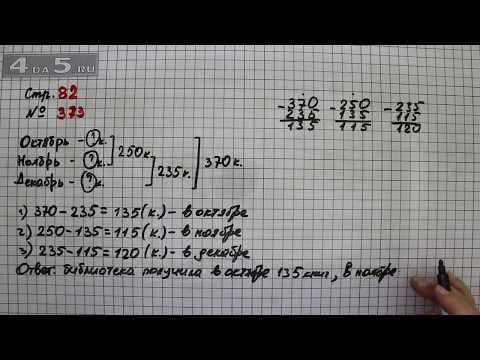 4 DA 5 .RU
Стр. 82
№ 373
Октябрь - ? к.
Ноябрь - ? к.
Декабрь - ? к.
250 к.
235 к.
370 к.
- 370
235
135
- 250
135
115
- 235
115
120
1) 370 - 235 = 135 (к.) - в октябре
2) 250 - 135 = 115 (к.) - в ноябре
3) 235 - 115 = 120 (к.) - в декабре
Ответ: библиотека получила в октябре 135 книг, в ноябре